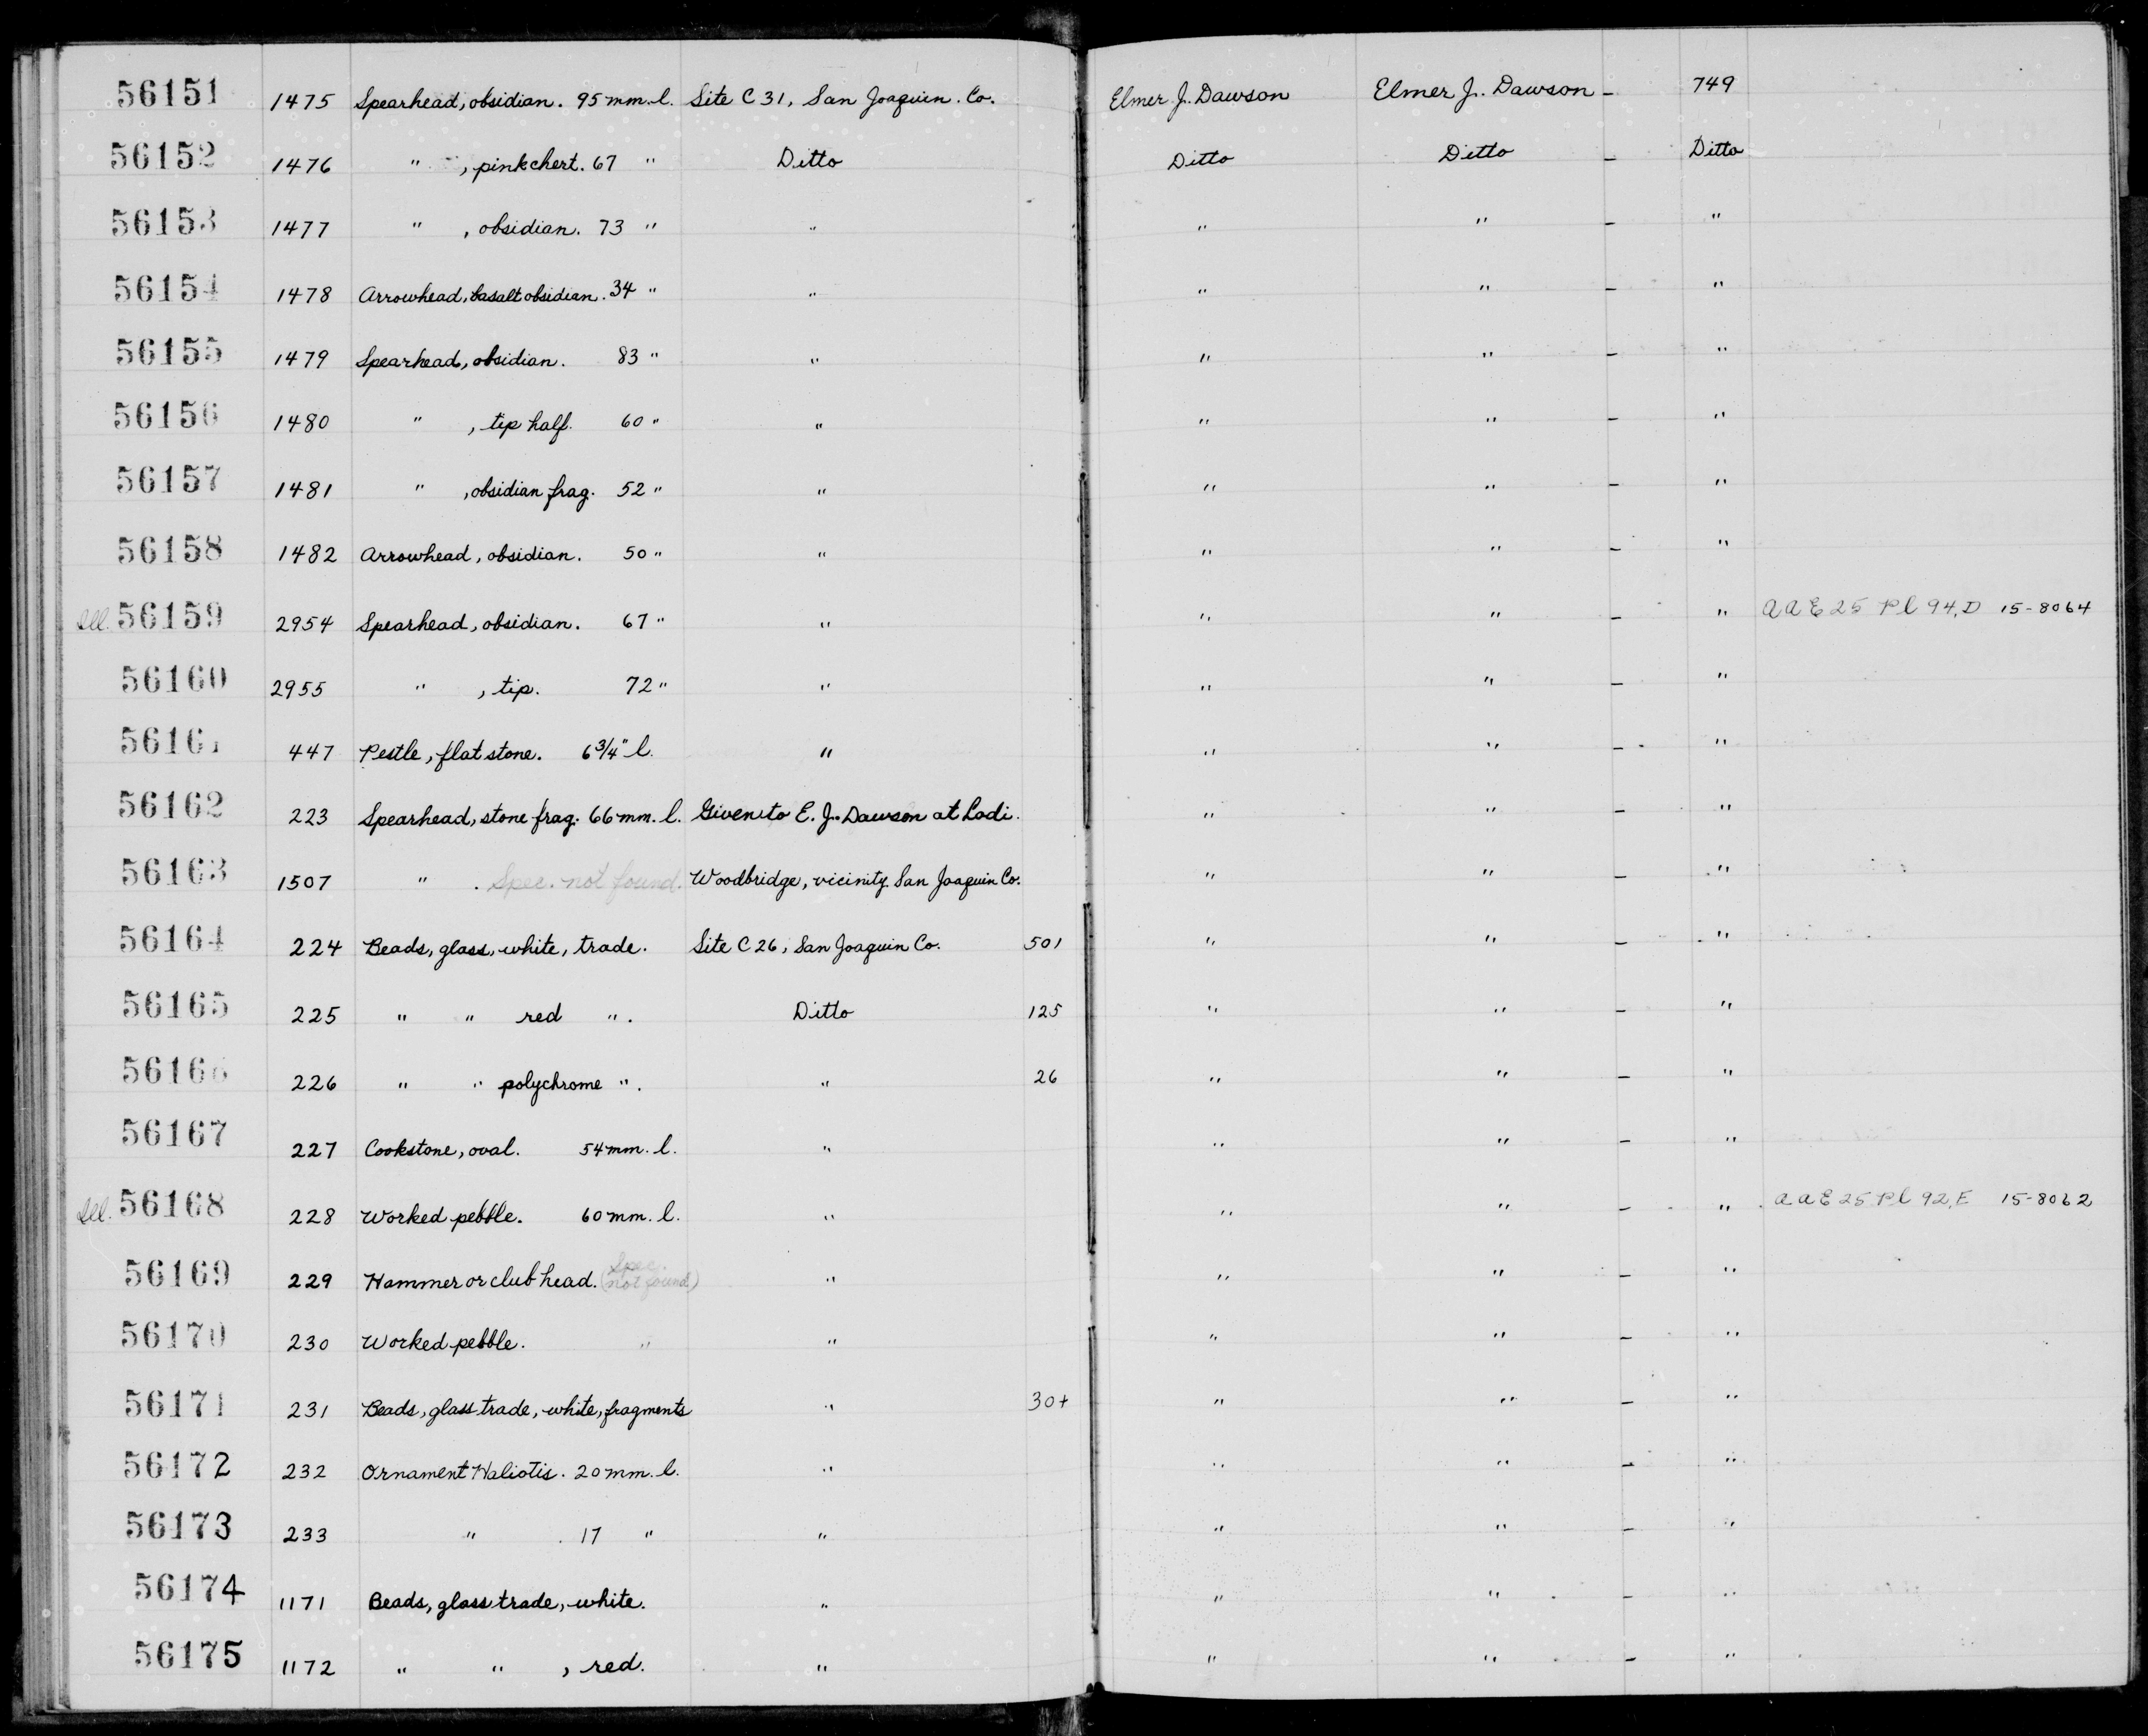 56151 1475 Spearhead, obsidian. 95 mm. l. Site C 31, San Joaquin. Co. Elmer J. Dawson Elmer J. Dawson - 749
56152 1476 " , pink chert. 67 " Ditto Ditto Ditto - Ditto
56153 1477 " , obsidian. 73 " " " " - "
56154 1478 Arrowhead, basalt obsidian. 34 " " " " - "
56155 1479 Spearhead, obsidian. 83 " " " " - "
56156 1480 " , tip half. 60 " " " " - "
56157 1481 " , obsidian frag. 52 " " " " - "
56158 1482 Arrowhead, obsidian. 50 " " " " - "
Ill. 56159 2954 Spearhead, obsidian. 67 " " " " - " AAE 25 Pl 94, D 15-8064
56160 2955 " , tip. 72 " " " " - "
56161 447 Pestle, flat stone. 6 3/4" l. " " " - "
56162 223 Spearhead, stone frag. 66 mm. l. Given to E. J. Dawson at Lodi. " " - "
56163 1507 " . Spec. not found. Woodbridge, vicinity San Joaquin Co. " " - "
56164 224 Beads, glass, white, trade. Site C 26, San Joaquin Co. 501 " " - "
56165 225 " " red " . Ditto 125 " " - "
56166 226 " " polychrome " . " 26 " " - "
56167 227 Cookstone, oval. 54 mm. l. " " " - "
Ill. 56168 228 Worked pebble. 60 mm. l. " " " - " AAE 25 Pl 92, E 15-8062
56169 229 Hammer or club head. (Spec. not found) " " " - "
56170 230 Worked pebble. " " " " - "
56171 231 Beads, glass trade, white, fragments " 30+ " " - "
56172 232 Ornament Haliotis. 20 mm. l. " " " - "
56173 233 " . 17 " " " " - "
56174 1171 Beads, glass trade, white. " " " - "
56175 1172 " " , red. " " " - "